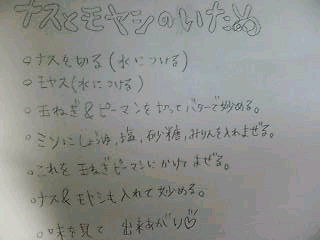 ナスとモヤシのいため
○ナスを切る(水につける)
○モヤス(水につける)
○玉ねぎ&ピーマンを切ってバターで炒める。
○ミソにしょう油,塩,砂糖,みりんを入れまぜる。
○これを玉ねぎピーマンにかけてまぜる。
○ナス&モヤシも入れて炒める。
○味を見て 出来あがり♡